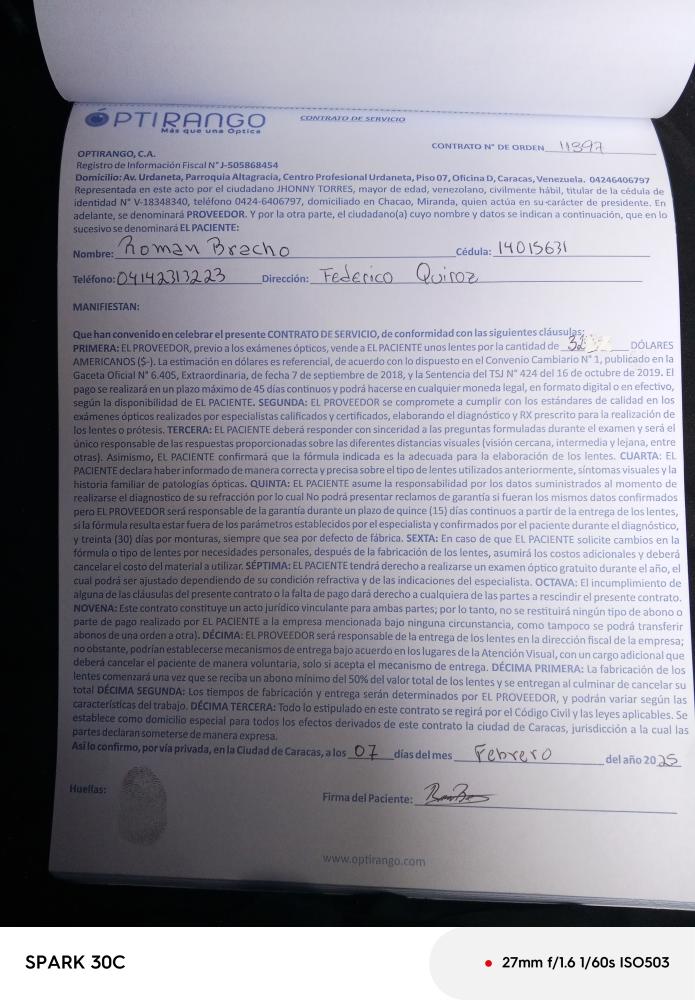 ÓPTIRANGO
Más que una Óptica
CONTRATO DE SERVICIO
CONTRATO N° DE ORDEN 11897
OPTIRANGO, C.A.
Registro de Información Fiscal N° J-505868454
Domicilio: Av. Urdaneta, Parroquia Altagracia, Centro Profesional Urdaneta, Piso 07, Oficina D, Caracas, Venezuela. 04246406797
Representada en este acto por el ciudadano JHONNY TORRES, mayor de edad, venezolano, civilmente hábil, titular de la cédula de
identidad N° V-18348340, teléfono 0424-6406797, domiciliado en Chacao, Miranda, quien actúa en su carácter de presidente. En
adelante, se denominará PROVEEDOR. Y por la otra parte, el ciudadano(a) cuyo nombre y datos se indican a continuación, que en lo
sucesivo se denominará EL PACIENTE:
Nombre: Roman Bracho Cédula: 14015631
Teléfono: 04142313223 Dirección: Federico Quiroz
MANIFIESTAN:
Que han convenido en celebrar el presente CONTRATO DE SERVICIO, de conformidad con las siguientes cláusulas:
PRIMERA: EL PROVEEDOR, previo a los exámenes ópticos, vende a EL PACIENTE unos lentes por la cantidad de DÓLARES
AMERICANOS ($-). La estimación en dólares es referencial, de acuerdo con lo dispuesto en el Convenio Cambiario N° 1, publicado en la
Gaceta Oficial N° 6.405, Extraordinaria, de fecha 7 de septiembre de 2018, y la Sentencia del TSJ N° 424 del 16 de octubre de 2019. El
pago se realizará en un plazo máximo de 45 días continuos y podrá hacerse en cualquier moneda legal, en formato digital o en efectivo,
según la disponibilidad de EL PACIENTE. SEGUNDA: EL PROVEEDOR se compromete a cumplir con los estándares de calidad en los
exámenes ópticos realizados por especialistas calificados y certificados, elaborando el diagnóstico y RX prescrito para la realización de
los lentes o prótesis. TERCERA: EL PACIENTE deberá responder con sinceridad a las preguntas formuladas durante el examen y será el
único responsable de las respuestas proporcionadas sobre las diferentes distancias visuales (visión cercana, intermedia y lejana, entre
otras). Asimismo, EL PACIENTE confirmará que la fórmula indicada es la adecuada para la elaboración de los lentes. CUARTA: EL
PACIENTE declara haber informado de manera correcta y precisa sobre el tipo de lentes utilizados anteriormente, síntomas visuales y la
historia familiar de patologías ópticas. QUINTA: EL PACIENTE asume la responsabilidad por los datos suministrados al momento de
realizarse el diagnostico de su refracción por lo cual No podrá presentar reclamos de garantía si fueran los mismos datos confirmados
pero EL PROVEEDOR será responsable de la garantía durante un plazo de quince (15) días continuos a partir de la entrega de los lentes,
si la fórmula resulta estar fuera de los parámetros establecidos por el especialista y confirmados por el paciente durante el diagnóstico,
y treinta (30) días por monturas, siempre que sea por defecto de fábrica. SEXTA: En caso de que EL PACIENTE solicite cambios en la
fórmula o tipo de lentes por necesidades personales, después de la fabricación de los lentes, asumirá los costos adicionales y deberá
cancelar el costo del material a utilizar. SÉPTIMA: EL PACIENTE tendrá derecho a realizarse un examen óptico gratuito durante el año, el
cual podrá ser ajustado dependiendo de su condición refractiva y de las indicaciones del especialista. OCTAVA: El incumplimiento de
alguna de las cláusulas del presente contrato o la falta de pago dará derecho a cualquiera de las partes a rescindir el presente contrato.
NOVENA: Este contrato constituye un acto jurídico vinculante para ambas partes; por lo tanto, no se restituirá ningún tipo de abono o
parte de pago realizado por EL PACIENTE a la empresa mencionada bajo ninguna circunstancia, como tampoco se podrá transferir
abonos de una orden a otra). DÉCIMA: EL PROVEEDOR será responsable de la entrega de los lentes en la dirección fiscal de la empresa;
no obstante, podrían establecerse mecanismos de entrega bajo acuerdo en los lugares de la Atención Visual, con un cargo adicional que
deberá cancelar el paciente de manera voluntaria, solo si acepta el mecanismo de entrega. DÉCIMA PRIMERA: La fabricación de los
lentes comenzará una vez que se reciba un abono mínimo del 50% del valor total de los lentes y se entregan al culminar de cancelar su
total DÉCIMA SEGUNDA: Los tiempos de fabricación y entrega serán determinados por EL PROVEEDOR, y podrán variar según las
características del trabajo. DÉCIMA TERCERA: Todo lo estipulado en este contrato se regirá por el Código Civil y las leyes aplicables. Se
establece como domicilio especial para todos los efectos derivados de este contrato la ciudad de Caracas, jurisdicción a la cual las
partes declaran someterse de manera expresa.
Así lo confirmo, por vía privada, en la Ciudad de Caracas, a los 07 días del mes Febrero del año 2025
Huellas:
Firma del Paciente:
www.optirango.com
SPARK 30C
27mm f/1.6 1/60s ISO503